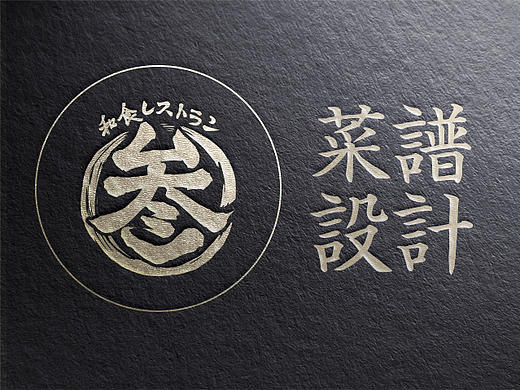 和食レストラン
叁
菜譜
設計